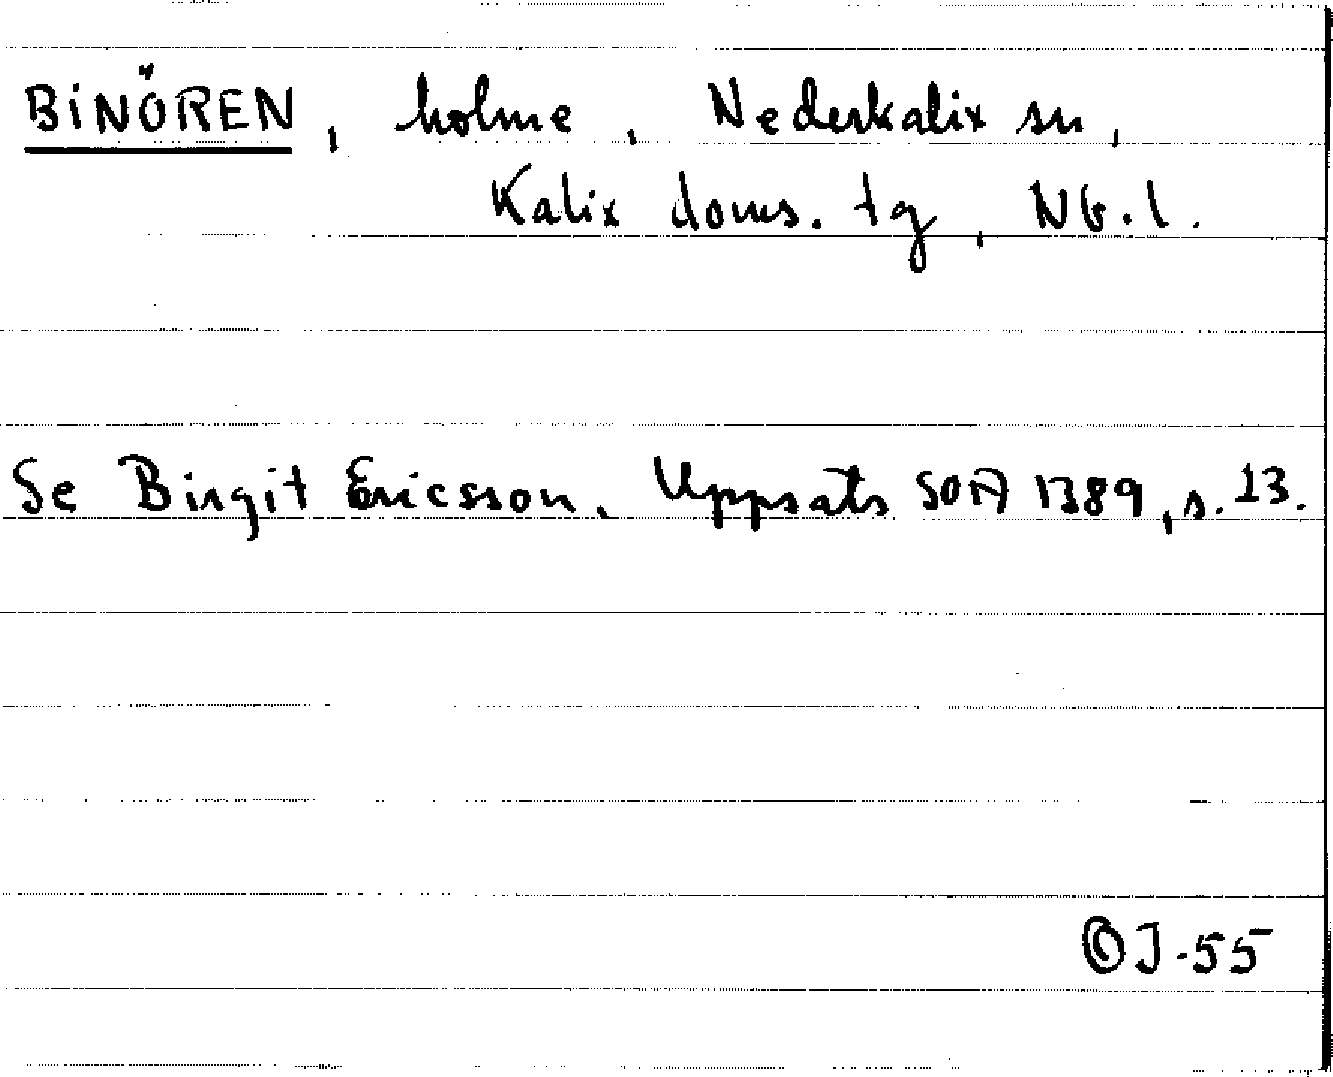 BINÖREN, holme, Nederkalix sn,
Kalix doms. tg, Nb.l.
Se Birgit Ericsson. Uppsats SOA 1389, s. 23.
J-55